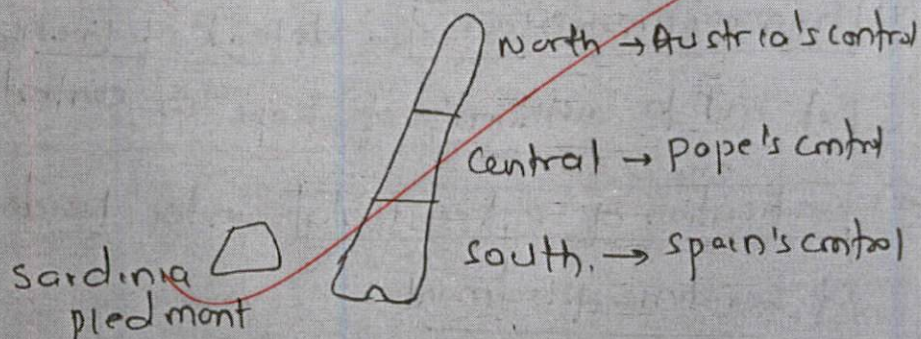 North → Austria's control
Central → Pope's control
South. → Spain's control
Sardinia
piedmont